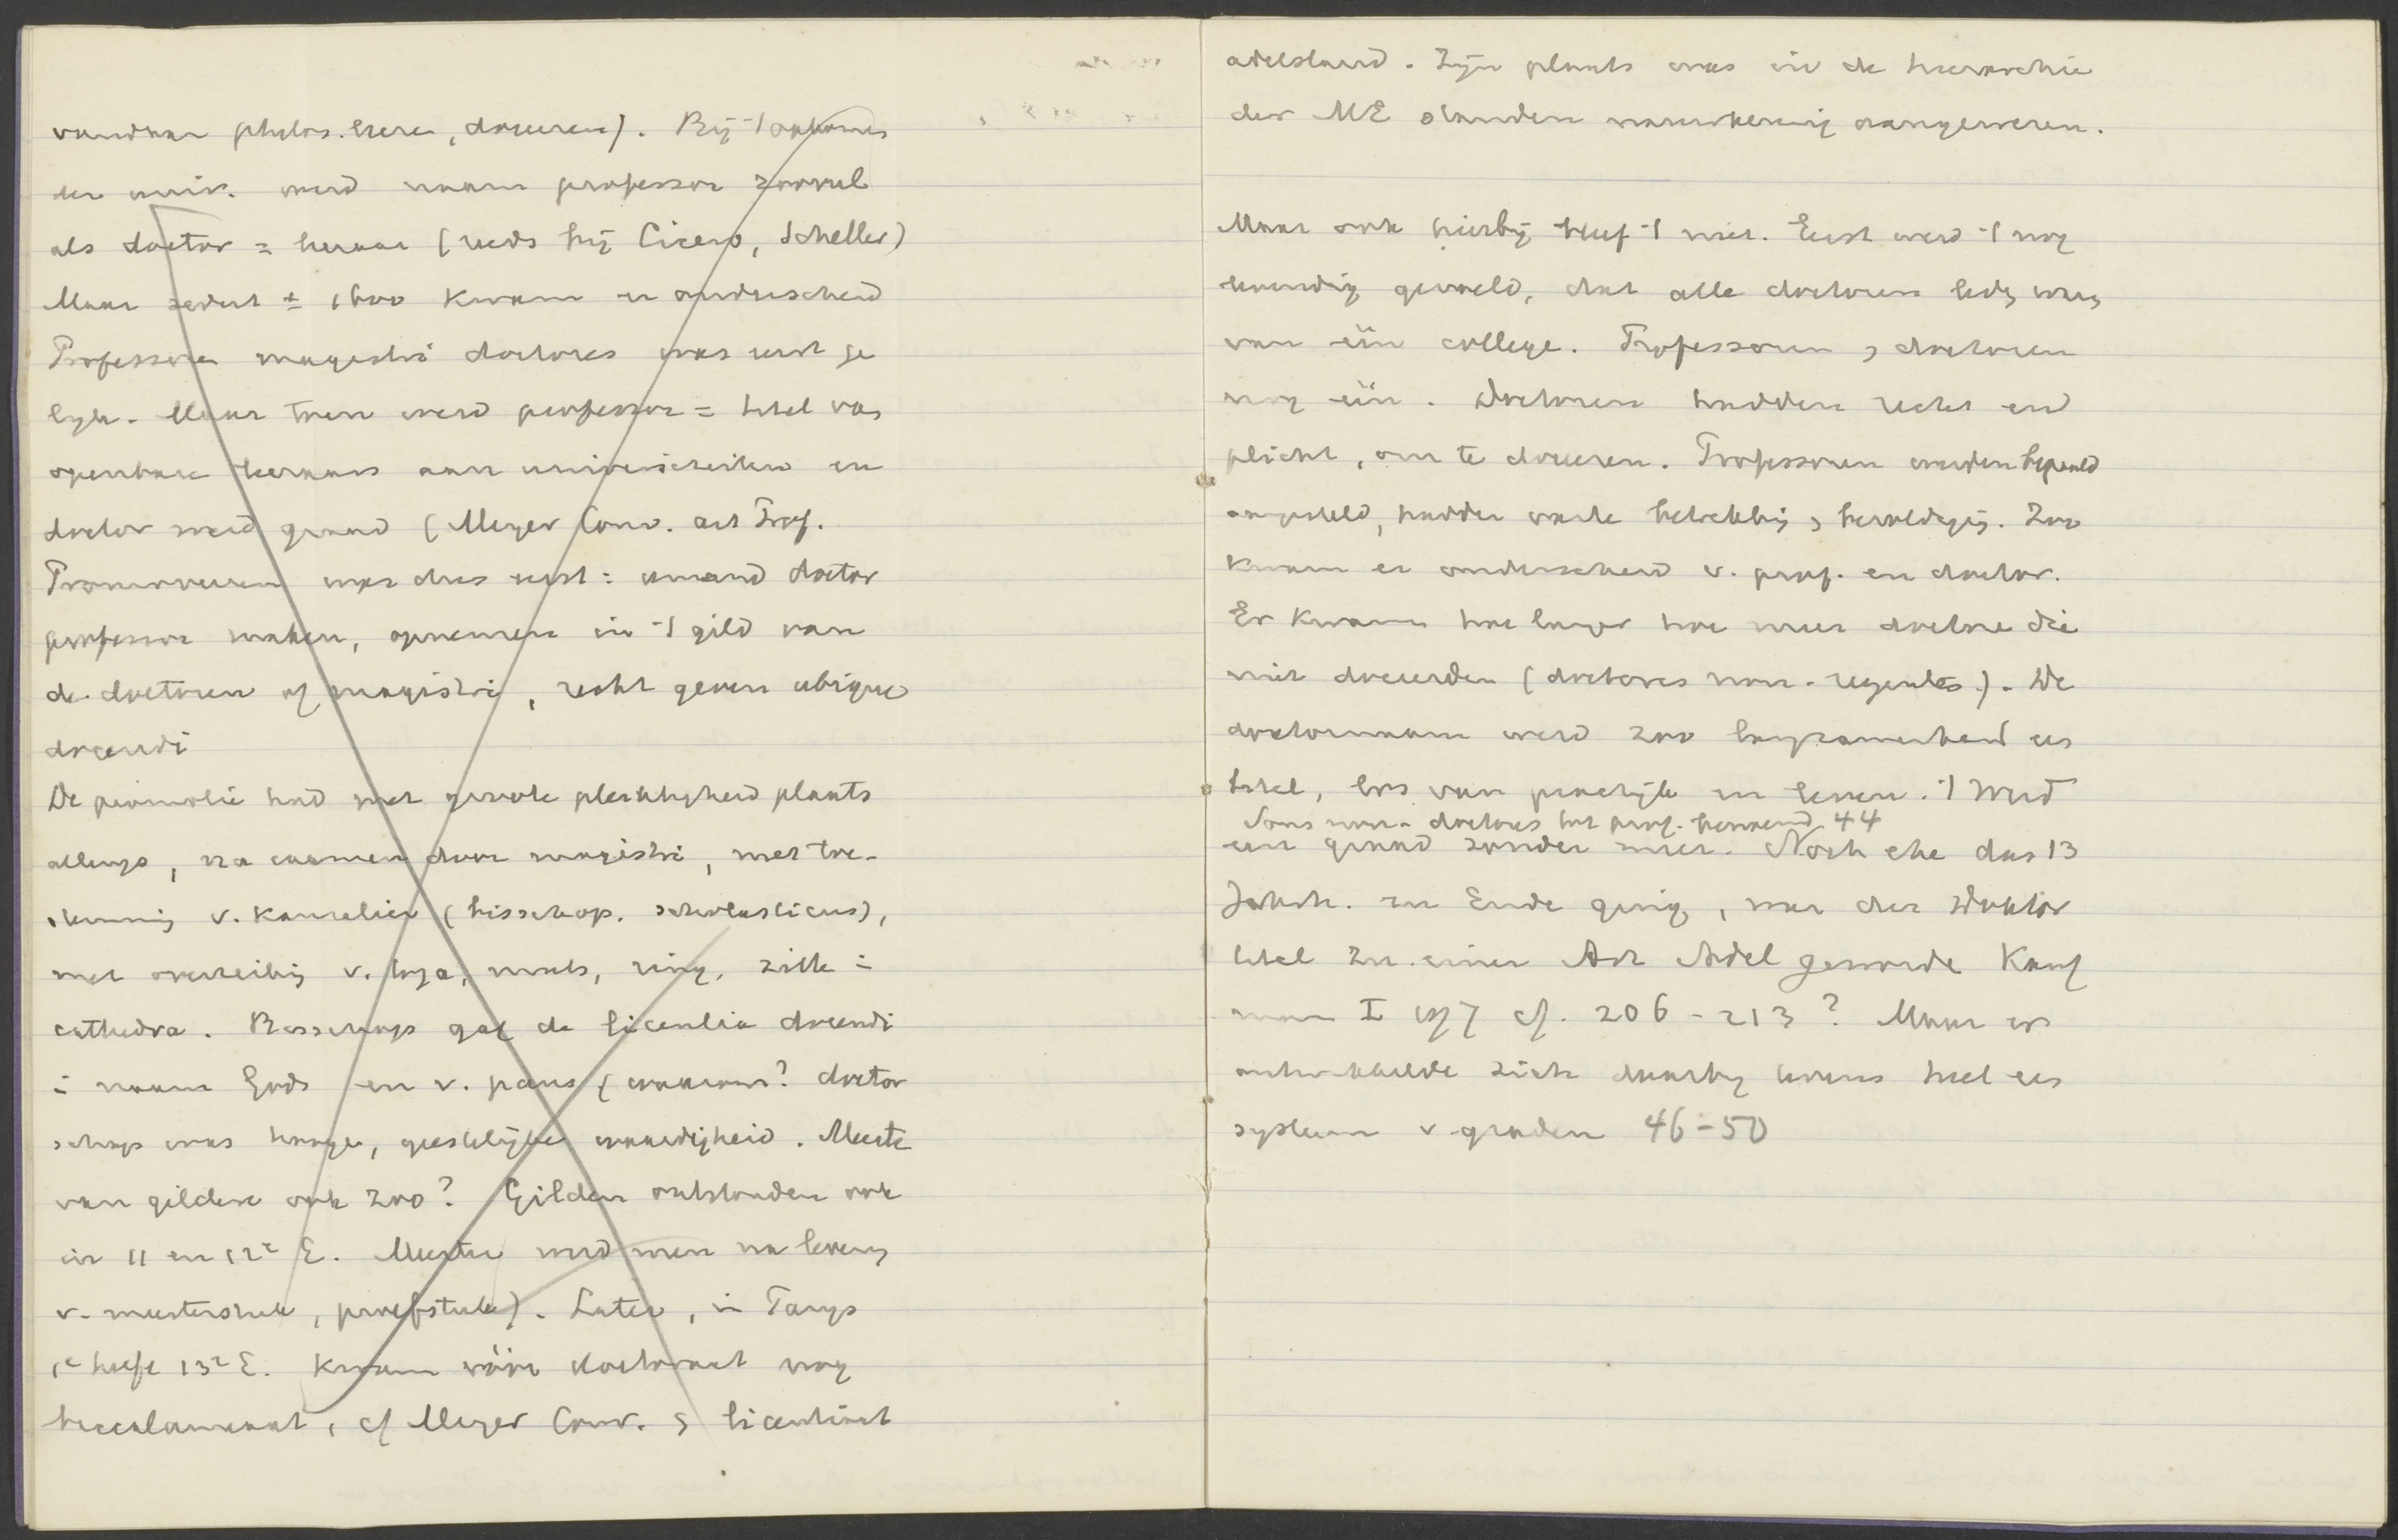 vandaar philos. leeren, doceeren). Bij 't opkomen
der univ. werd naam professor zoowel
als doctor = leeraar (reeds bij Cicero, Scheller)
Maar sedert ± 1600 kwam er onderscheid
Professoren magistri doctores was eerst ge
lijk. Maar toen werd professor = titel van
openbare leeraars aan universiteiten en
doctor werd graad (Meyer Conv. art Prof.
Promoveeren was dus eerst: iemand doctor
professor maken, opnemen in 't gild van
de doctoren of magistri, recht geven ubique
docendi
De promotie had met groote plechtigheid plaats
allengs, na examen door magistri, met toe-
stemming v. kanselier (bisschop. scholasticus),
met overreiking v. toga, muts, ring, zitten i
cathedra. Bisschop gaf de licentia docendi
i naam Gods en v. paus (waarom? doctor
schap was hooge, geestelijke waardigheid. Meester
van gilden ook zoo? Gilden ontstonden ook
in 11 en 12e E. Meester werd men na levering
v. meesterstuk, proefstuk). Later, in Parijs
1e helft 13e E. kwam vóór doctoraat nog
baccalaureaat, cf Meyer Conv. en licentiaat
adelstand. Zijn plaats was in de hierarchie
der ME standen nauwkeurig aangewezen.
Maar ook hierbij bleef 't niet. Eerst werd 't nog
levendig gevoeld, dat alle doctoren leden waren
van één college. Professoren en doctoren
nog één. Doctoren hadden recht en
plicht, om te doceeren. Professoren werden bepaald
aangesteld, hadden vaste betrekking en bezoldiging. Zoo
kwam er onderscheid v. prof. en doctor.
Er kwamen hoe langer hoe meer doctoren die
niet doceerden (doctores non-regentes). De
doctornaam werd zoo langzamerhand een
titel, los van practijk en leven. 't Werd
Soms non-doctores tot prof. benoemd 44
een graad zonder meer. Noch ehe das 13
Jahrh. zu Ende ging, war der Doktor
titel zu einer Art Adel geworden Kauf
mann I 197 cf. 206-213? Maar er
ontwikkelde zich daarbij tevens heel een
systeem v. graden 46-50